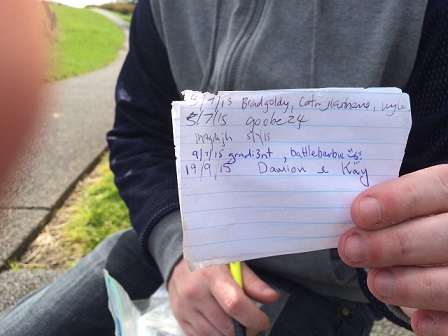 5/7/15 Bradgoldy,
5/7/15 goobe24
5/7/15
9/7/15 gradi3nt, battlebarbie
19/9/15 Damion & Kay